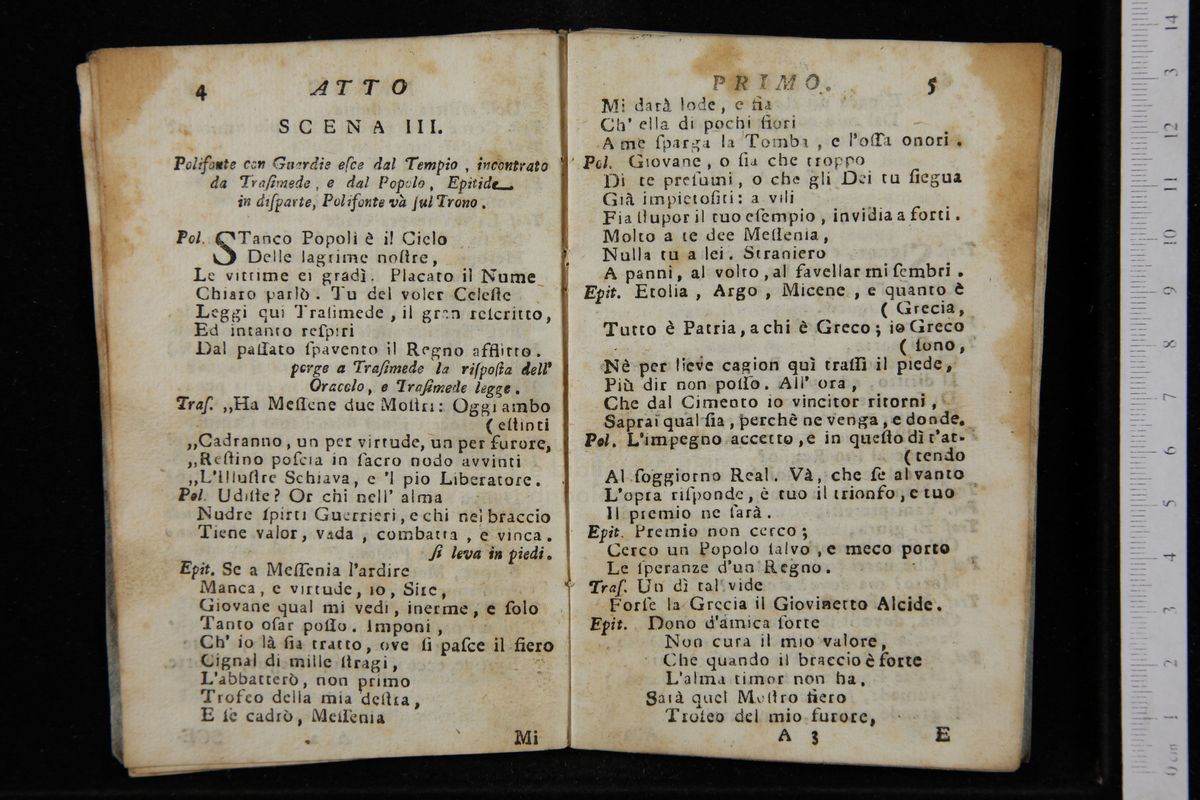 4 ATTO
SCENA III.
Polifonte con Guardie eſce dal Tempio, incontrato
da Traſimede, e dal Popolo, Epitide
in diſparte, Polifonte và ſul Trono.
Pol. STanco Popoli è il Cielo
Delle lagrime noſtre,
Le vittime ei gradì. Placato il Nume
Chiaro parlò. Tu del voler Celeſte
Leggi qui Traſimede, il gran reſcritto,
Ed intanto reſpiri
Dal paſſato ſpavento il Regno afflitto.
porge a Traſimede la riſpoſta dell'
Oracolo, e Traſimede legge.
Traſ. „Ha Meſſene due Moſtri: Oggi ambo
( eſtinti
„Cadranno, un per virtude, un per furore,
„Reſtino poſcia in ſacro nodo avvinti
„L'Illuſtre Schiava, e 'l pio Liberatore.
Pol. Udiſte? Or chi nell' alma
Nudre ſpirti Guerrieri, e chi nel braccio
Tiene valor, vada, combatta, e vinca.
ſi leva in piedi.
Epit. Se a Meſſenia l'ardire
Manca, e virtude, io, Sire,
Giovane qual mi vedi, inerme, e ſolo
Tanto oſar poſſo. Imponi,
Ch' io là ſia tratto, ove ſi paſce il fiero
Cignal di mille ſtragi,
L'abbatterò, non primo
Trofeo della mia deſtra,
E ſe cadrò, Meſſenia
Mi
PRIMO. 5
Mi darà lode, e fia
Ch' ella di pochi fiori
A me ſparga la Tomba, e l'oſſa onori.
Pol. Giovane, o ſia che troppo
Di te preſumi, o che gli Dei tu ſiegua
Già impietoſiti: a vili
Fia ſtupor il tuo eſempio, invidia a forti.
Molto a te dee Meſſenia,
Nulla tu a lei. Straniero
A panni, al volto, al favellar mi ſembri.
Epit. Etolia, Argo, Micene, e quanto è
( Grecia,
Tutto è Patria, a chi è Greco; io Greco
( ſono,
Nè per lieve cagion quì traſſi il piede,
Più dir non poſſo. All' ora,
Che dal Cimento io vincitor ritorni,
Saprai qual ſia, perchè ne venga, e donde.
Pol. L'impegno accetto, e in queſto dì t'at-
( tendo
Al ſoggiorno Real. Và, che ſe al vanto
L'opra riſponde, è tuo il trionfo, e tuo
Il premio ne ſarà.
Epit. Premio non cerco;
Cerco un Popolo ſalvo, e meco porto
Le ſperanze d'un Regno.
Traſ. Un dì tal vide
Forſe la Grecia il Giovinetto Alcide.
Epit. Dono d'amica ſorte
Non cura il mio valore,
Che quando il braccio è forte
L'alma timor non ha.
Sarà quel Moſtro fiero
Trofeo del mio furore,
A 3 E
0 cm 1 2 3 4 5 6 7 8 9 10 11 12 3 14